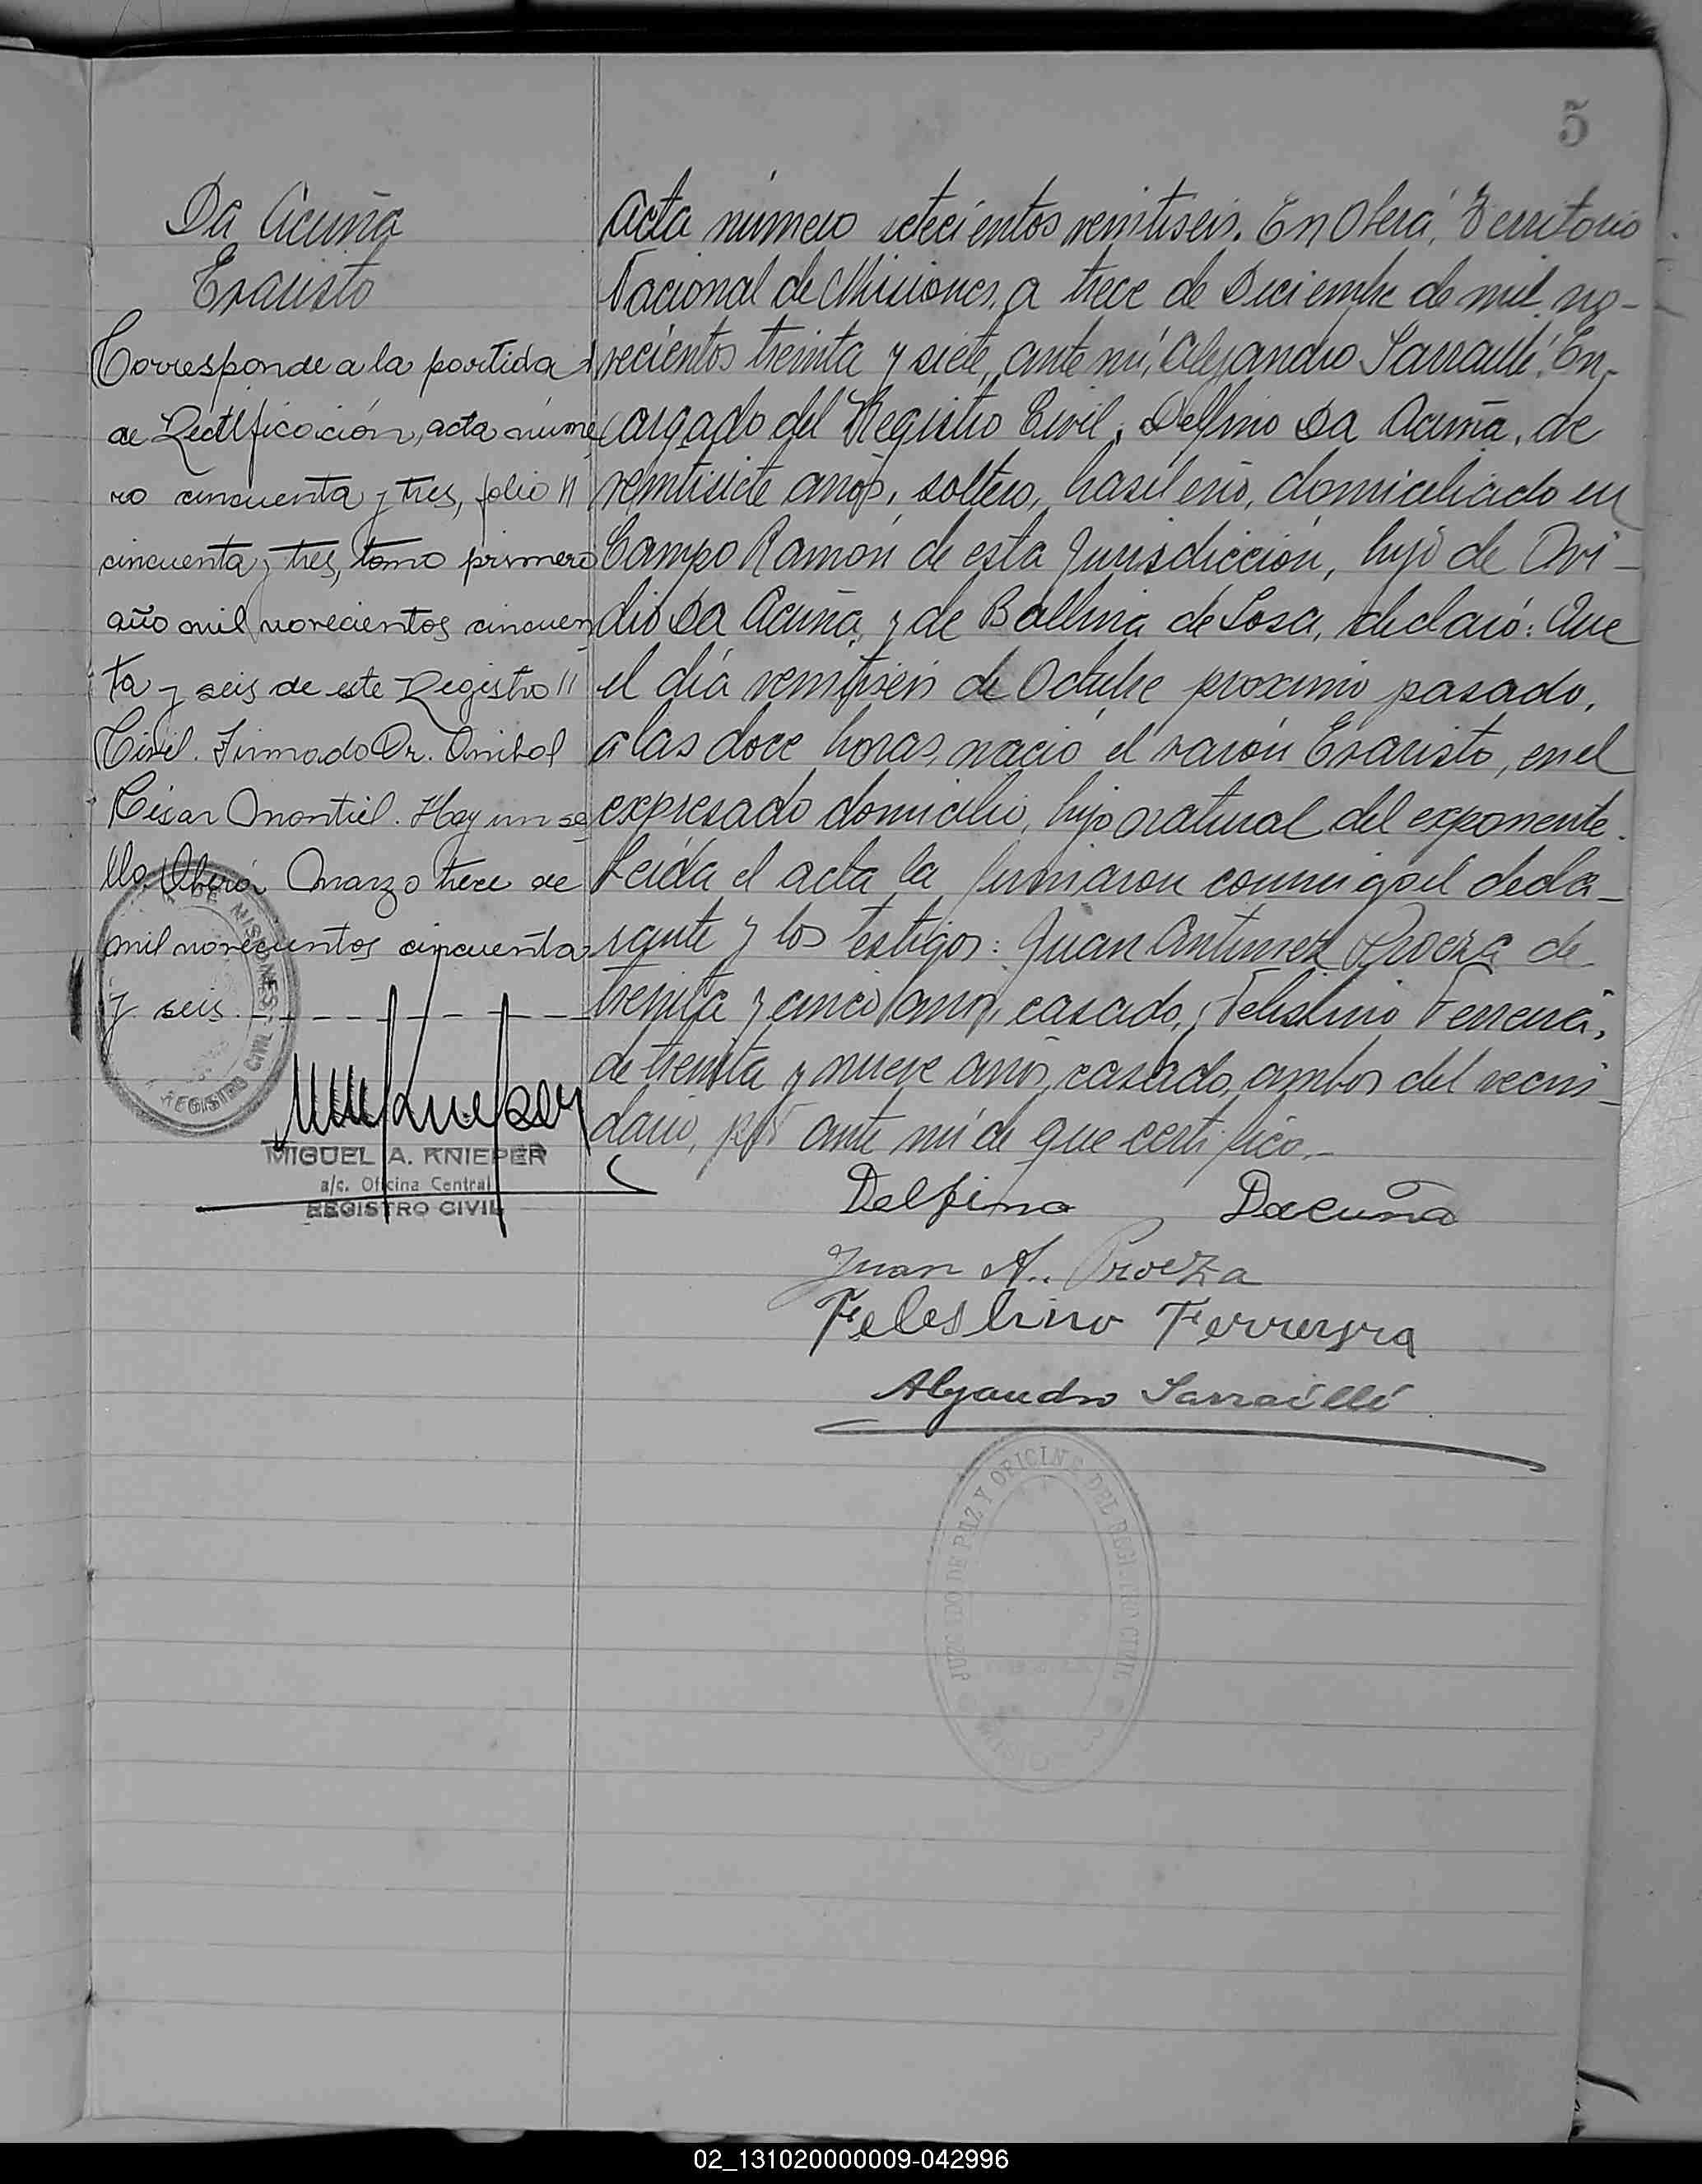 5
Da Acuña
Evaristo
Corresponde a la partida
de Rectificación, acta núme
ro cincuenta y tres, folio //
cincuenta y tres, tomo primero
año mil novecientos cincuen
ta y seis de este Registro //
Civil. Firmado Dr. Anibal
César Montiel. Hay un se
llo. Oberá, Marzo trece de
mil novecientos cincuenta
y seis.
MIGUEL A. KNIEPER
a/c. Oficina Central
REGISTRO CIVIL
DE MISIONES
REGISTRO CIVIL
Acta número setecientos veintiseis. En Oberá, Territorio
Nacional de Misiones, a trece de Diciembre de mil no-
vecientos treinta y siete, ante mí, Alejandro Sarraillé, En-
cargado del Registro Civil, Delfino Da Acuña, de
veintisiete años, soltero, brasileño, domiciliado en
Campo Ramón de esta Jurisdicción, hijo de Ovi-
dio Da Acuña, y de Ballina de Sosa, declaró: Que
el día veintiseis de Octubre proximo pasado,
a las doce horas, nació el varón Evaristo, en el
expresado domicilio, hijo natural del exponente.
Leída el acta la firmaron conmigo el decla-
rante y los testigos: Juan Antunez Proeza de
treinta y cinco años, casado, y Felislino Ferreira,
de treinta y nueve años, casado, ambos del vecin-
dario, por ante mí de que certifico.-
Delfino Dacuña
Juan A. Proeza
Feleslino Ferreyra
Alejandro Sarraillé
JUZGADO DE PAZ Y OFICINA DEL REGISTRO CIVIL
02_131020000009-042996